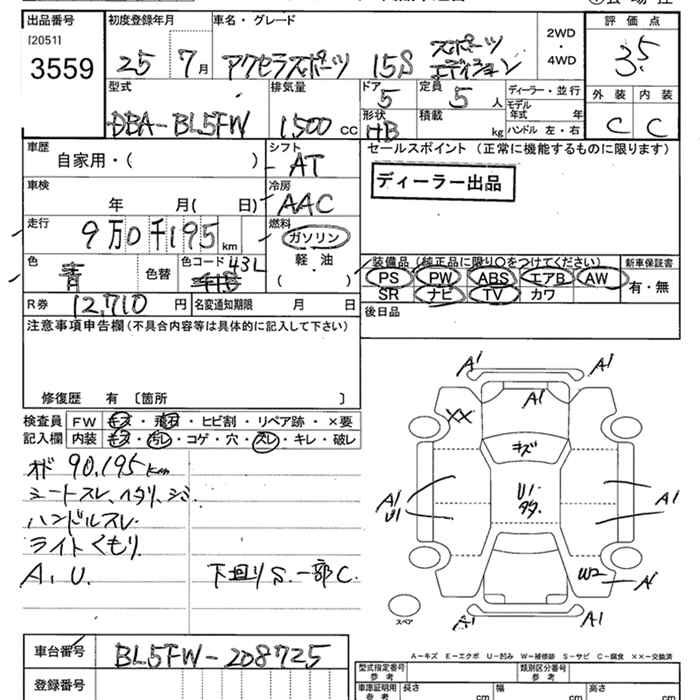 出品番号 初度登録年月 車名・グレード 2WD・4WD 評価点
[2051]
3559 25 7月 アクセラスポーツ 15S スポーツ エディション 3.5
型式 排気量 ドア 定員 ディーラー・並行 外装 内装
DBA-BL5FW 1,500 cc 5 5 人 モデル年式 年 C C
形状 積載 ハンドル 左・右
HB kg
車歴 シフト セールスポイント (正常に機能するものに限ります)
自家用・( ) AT ディーラー出品
車検 冷房
年 月( 日) AAC
走行 燃料
9万0千195km ガソリン
軽・油
( )
色 色替 色コード 43L
青
装備品(純正品に限り○をつけてください) 新車保証書
PS PW ABS エアB AW 有・無
SR ナビ TV カワ
R券 12,710 円 名変通知期限 月 日 後日品
注意事項申告欄(不具合内容等は具体的に記入して下さい)
修復歴 有 〔箇所 〕
検査員 FW キズ・飛石・ヒビ割・リペア跡・×要
記入欄 内装 キズ・汚レ・コゲ・穴・スレ・キレ・破レ
オド 90,195km
シートスレ、ヘタリ、シミ.
ハンドルスレ.
ライトくもり.
A、U. 下回りS.一部C.
A1 A1
A1
XX
キズ
A1 U1 U1・タタ. A1
W2 A1
A1 A1
スペア
A-キズ E-エクボ U-凹み W-補修跡 S-サビ C-腐食 XX-交換済
車台番号 BL5FW-208725
登録番号
型式指定番号 参考 類別区分番号 参考
車庫証明用 参考 長さ cm 幅 cm 高さ cm